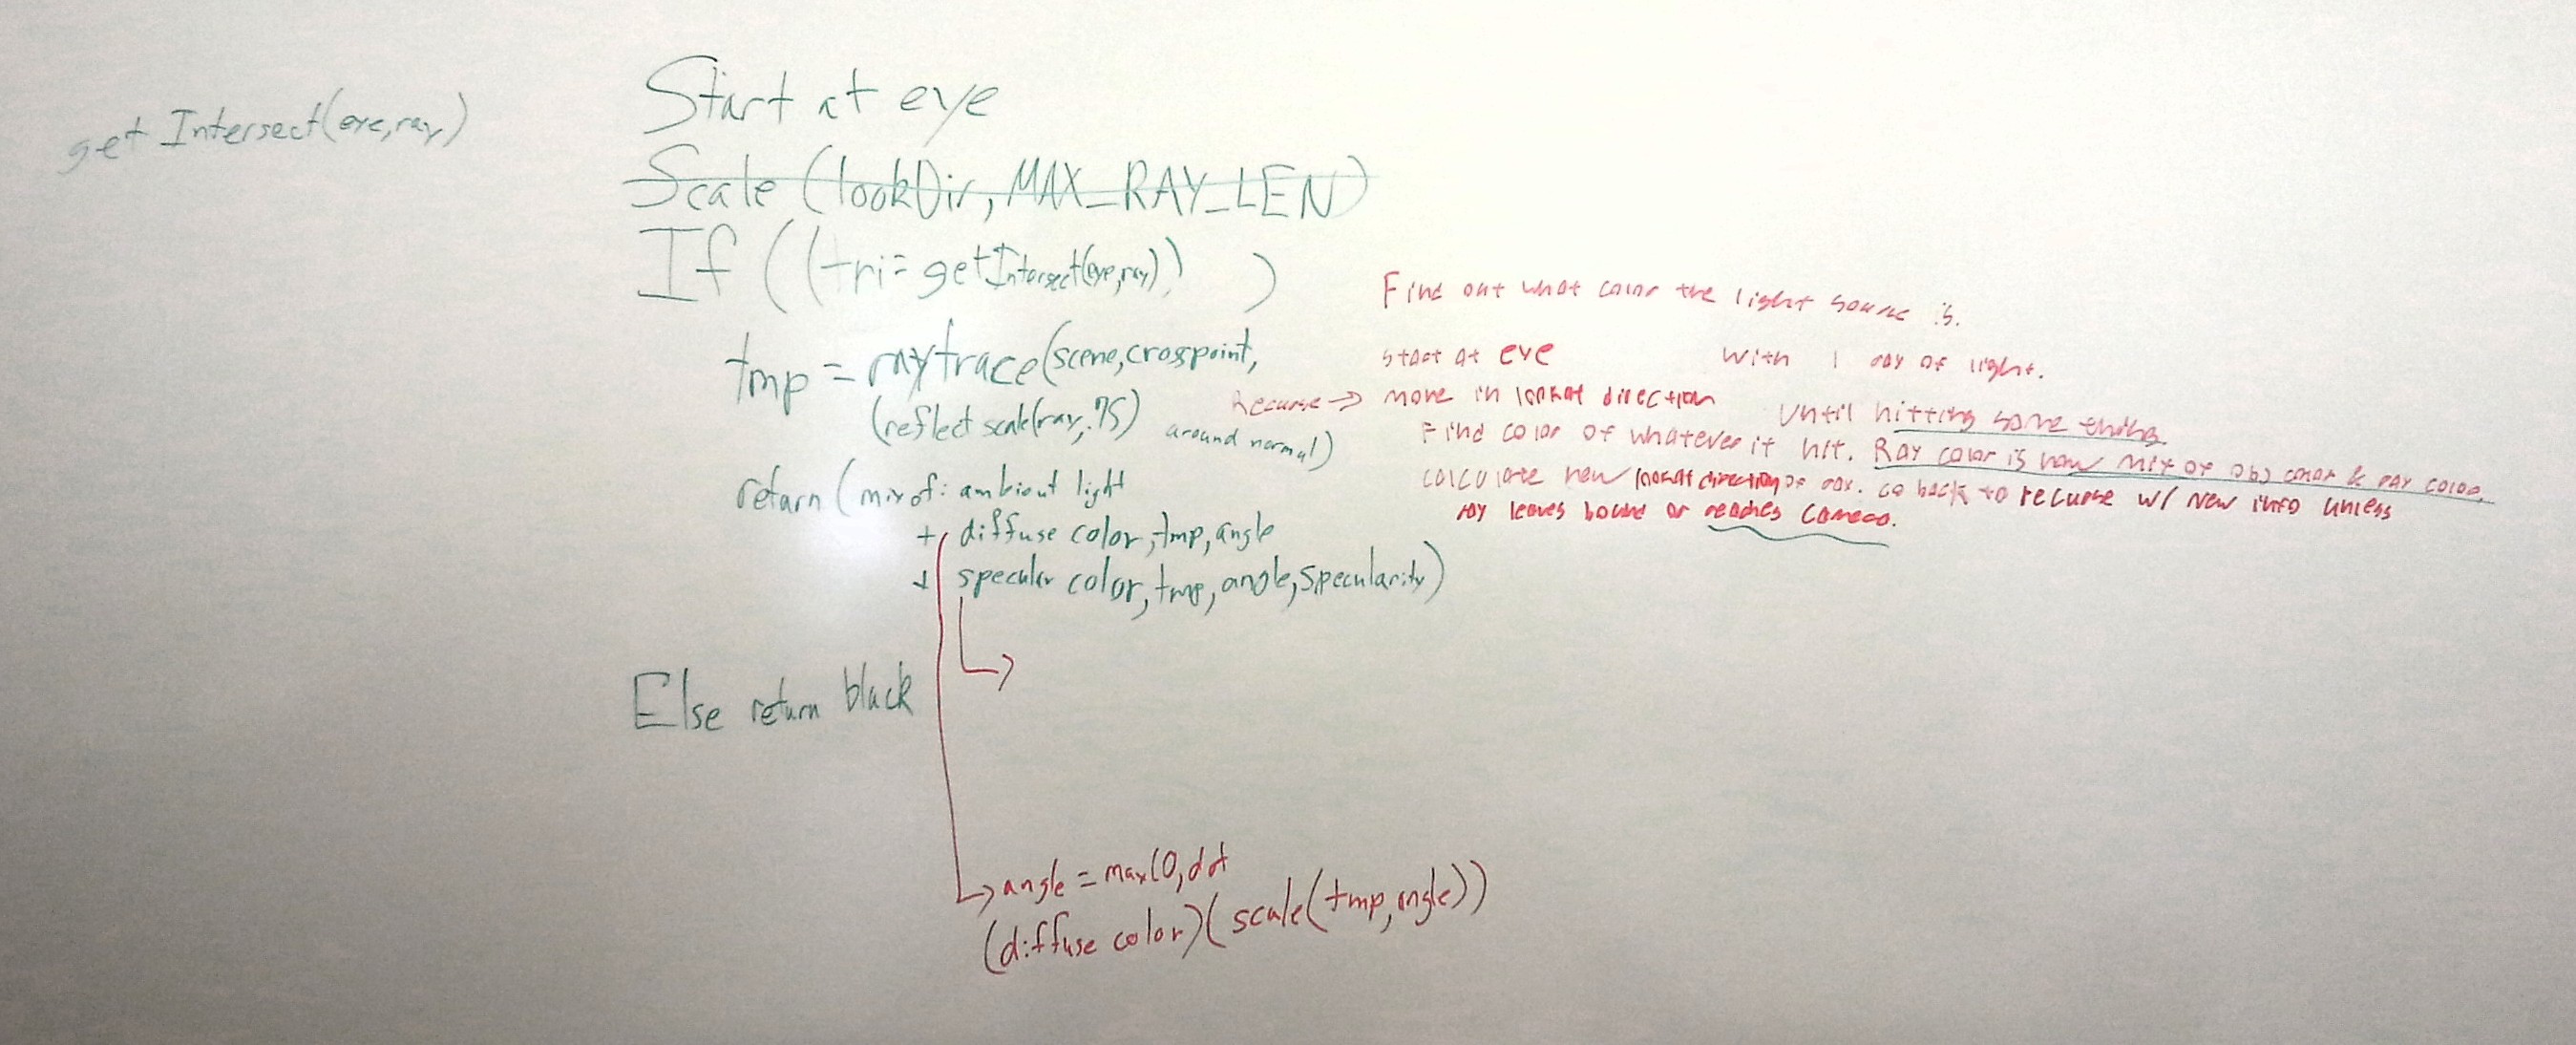 get Intersect(eye,ray)
Start at eye
Scale (lookDir, MAX_RAY_LEN)
If ((tri = getIntersect(eye,ray)) )
tmp = raytrace(scene, crosspoint,
(reflect scale(ray, .75) around normal)
return (mix of: ambient light
+ diffuse color, tmp, angle
+ specular color, tmp, angle, specularity)
Else return black
angle = max(0, dot
(diffuse color)(scale(tmp, angle))
Find out what color the light source is.
start at eye with 1 ray of light.
Recurse → move in lookat direction until hitting something.
Find color of whatever it hit. Ray color is now mix of obj color & ray color.
calculate new lookat direction of ray. Go back to recurse w/ new info unless
ray leaves bound or reaches camera.